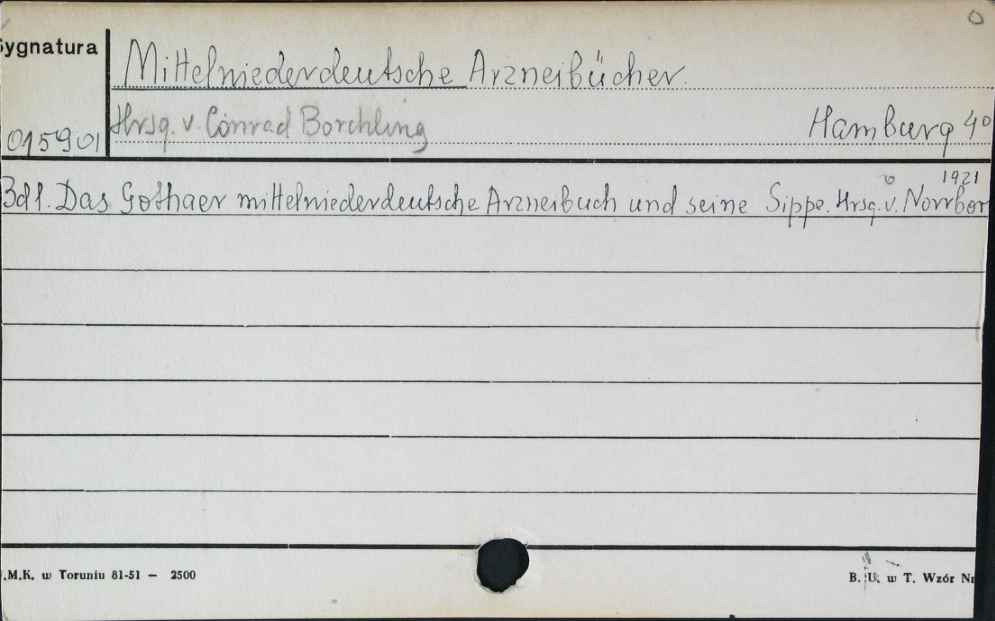 Sygnatura
Mittelniederdeutsche Arzneibücher.
015901
Hrsg. v. Conrad Borchling
Hamburg 4°
1921
Bd 1. Das Gothaer mittelniederdeutsche Arzneibuch und seine Sippe. Hrsg. v. Norrbom
.M.K. w Toruniu 81-51 — 2500
B. U. w T. Wzór Nr